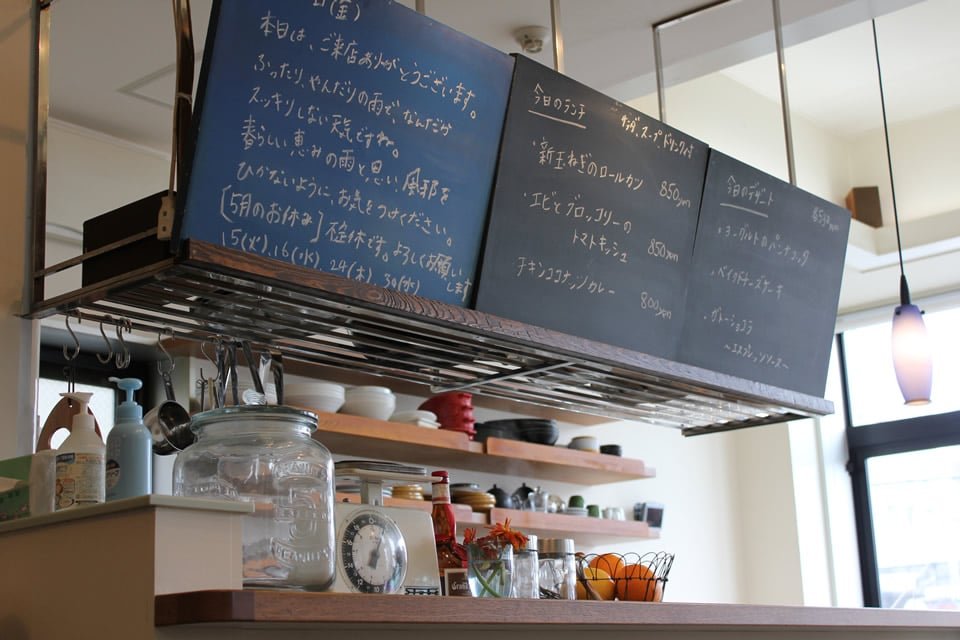 日(金)
本日は、ご来店ありがとうございます。
ふったり、やんだりの雨で、なんだか
スッキリしない天気ですね。
春らしい、恵みの雨と思い、風邪を
ひかないように、お気をつけください。
[5月のお休み]不定休です。よろしくお願いします
15(火)、16(水) 24(木)、30(水)
今日のランチ
サラダ、スープ、ドリンク付
・新玉ねぎのロールカツ 850yen
・エビとブロッコリーの
トマトキッシュ 850yen
チキンココナッツカレー 800yen
今日のデザート
・ヨーグルトのパンナコッタ
・ベイクドチーズケーキ
・ガトーショコラ
〜エスプレッソソース〜
PEANUTS
5
PEANUTS